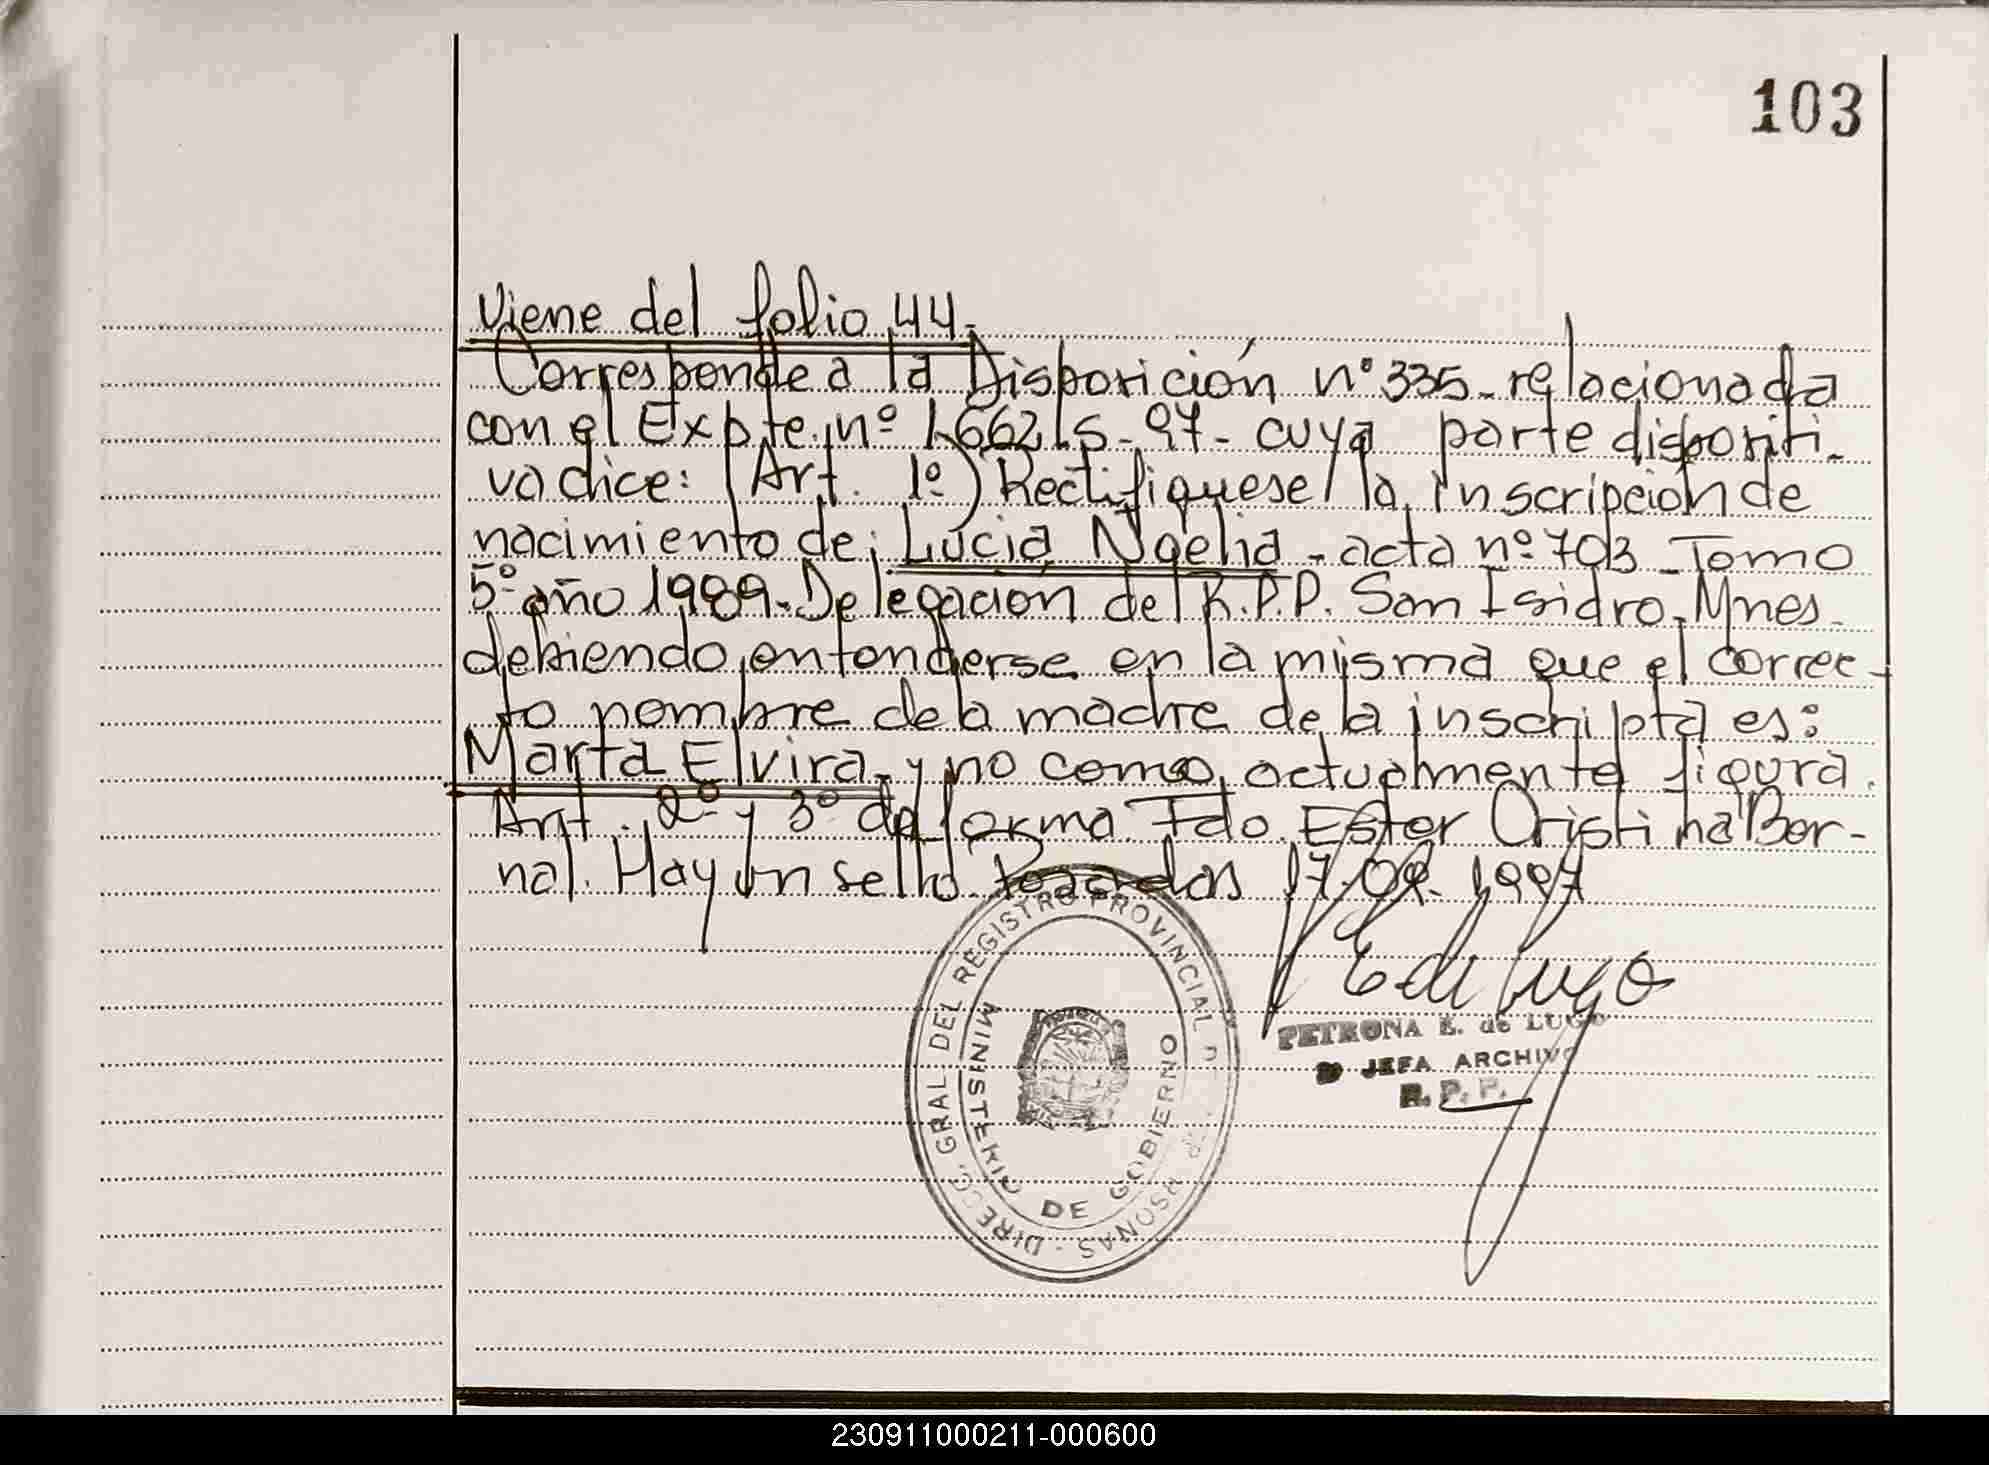 103
Viene del folio 44.
Corresponde a la Disposición nº 335 - relacionada
con el Expte. nº 1.662 - S - 97 - cuya parte dispositi-
va dice: (Art. 1º) Rectifíquese la inscripción de
nacimiento de: Lucia Noelia - acta nº 703 - Tomo
5º año 1989 - Delegación del R.P.P. San Isidro - Mnes -
debiendo entenderse en la misma que el correc-
to nombre de la madre de la inscripta es:
Marta Elvira - y no como actualmente figura.
Art. 2º y 3º de forma. Fdo. Ester Cristina Ber-
nal. Hay un sello Posadas 17.09.1997
DIRECC. GRAL DEL REGISTRO PROVINCIAL DE PERSONAS -
MINISTERIO DE GOBIERNO
PETRONA E. de LUGO
JEFA ARCHIVO
R. P. P.
230911000211-000600